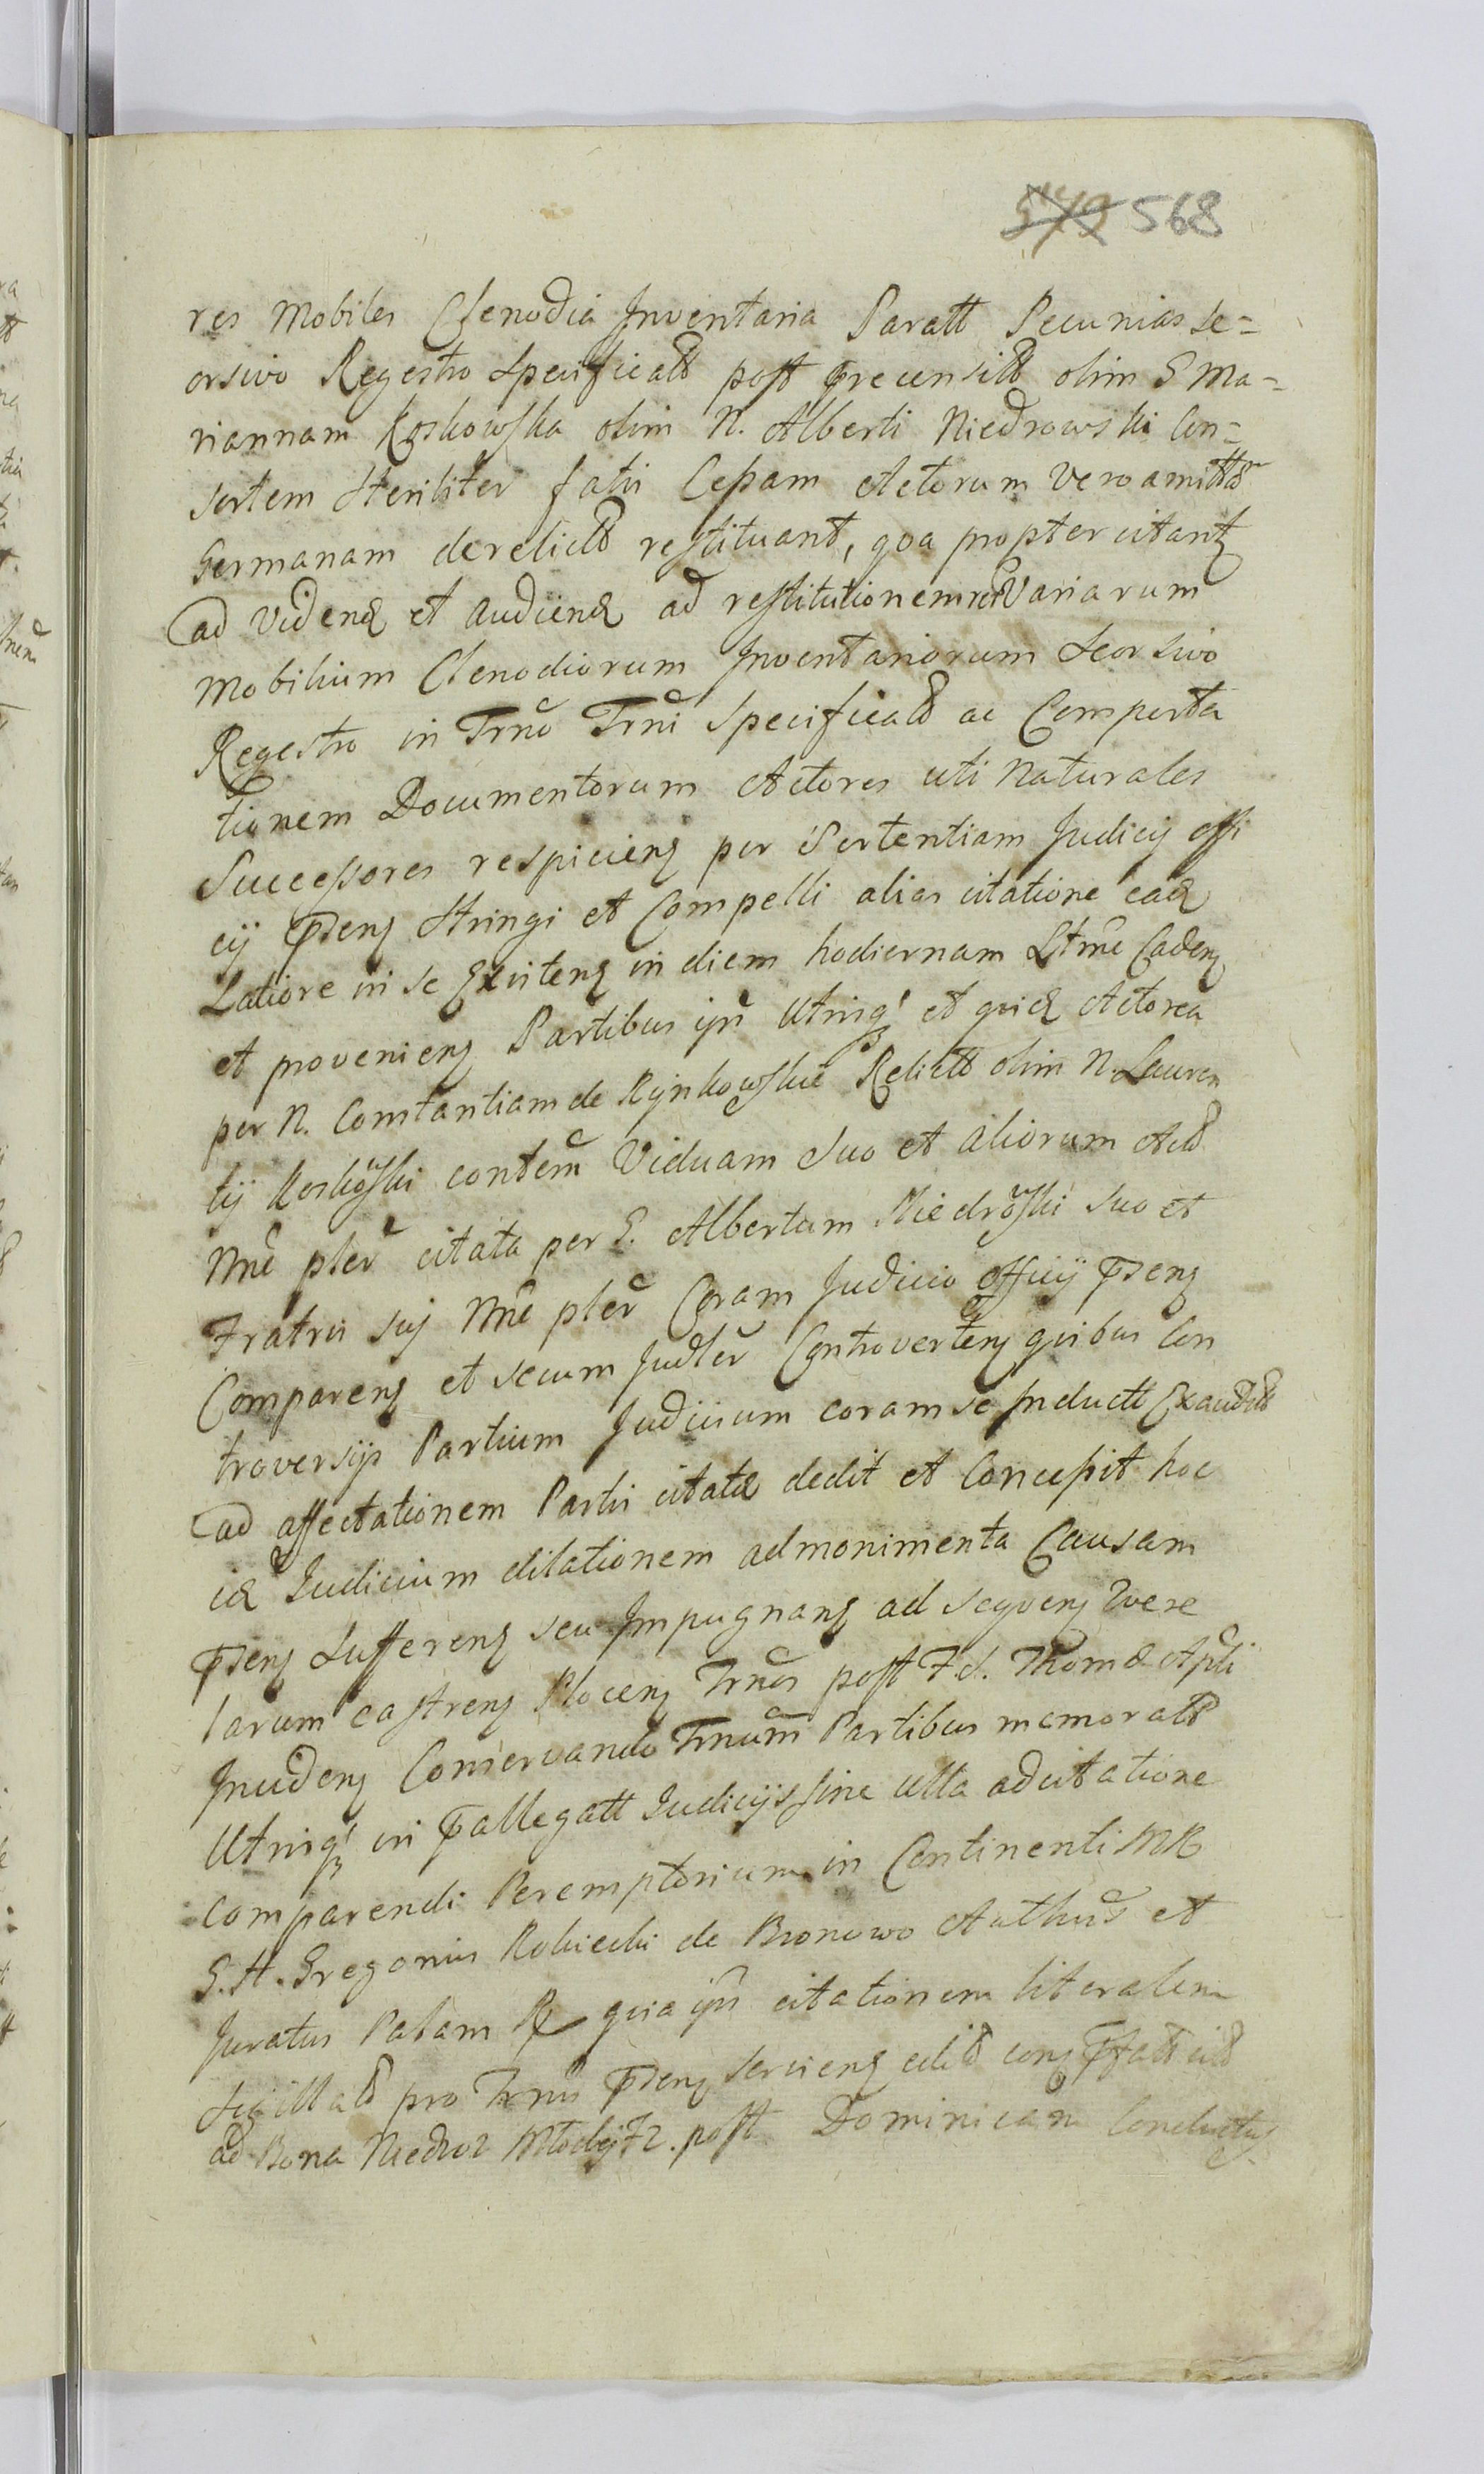 579 568
res Mobiles Clenodia Inventaria Paratt Pecunias se=
orsivo Regestro Specificatt post precensitt olim G Ma=
riannam Koskowska olim N. Alberti Niedrowski Con=
sortem Steriliter fatis Cessam Actorum vero amittam
Germanam derelictt restituant, qva propter citant
ad Videnđ et Audienđ ad restitutionem rer Variarum
Mobilium Clenodiorum Inventariorum Seorsivo
Regestro in Trno Trni Specificatt ac Comporta
tionem Documentorum Actores uti Naturales
Successores respicienș per Sertentiam Judicij offi
cij Prenș Stringi et Compelli alias citatione eađ
Latiore in se Existenș in diem hodiernam Ltme Cadenș
et provenienș Partibus ipis Utrisq́ et quiđ Actorea
per N. Constantiam de Rynkowskie Relictt olim N. Lauren
tij Koskowski contem Viduam Suo et aliorum Actt
Nne pler citata per G. Albertum Niedrowski Suo et
Fratris sui Nne pler Coram Judicio officij Prenș
Comparenș et secum Judler Controvertenș quibus Con
troversijs Partium Judicium coram se Inductt Exauditt
ad affectationem Partis citatæ dedit et Concessit hoc
iđ Judicium dilationem ad monimenta Causam
Prenș Sufferenș seu Impugnanș ad seqvenș Qvere
larum castrenș Plocenș Trnos post F. S. Thomæ Apli
Incidenș Conservando Trnum Partibus memoratt
Utrisq́ in Pallegatt Judicijs sine ulla adcitatione
comparendi Peremptorium in Continenti MR
G. H. Gregorius Rokicki de Bronowo Authus et
Juratus Palam R quia ipse citationem literalem
Sigillatt pro Trnis Prenș servienș edit conș
ad Bona Niedroz Młody F 2. post Dominicam Conductus